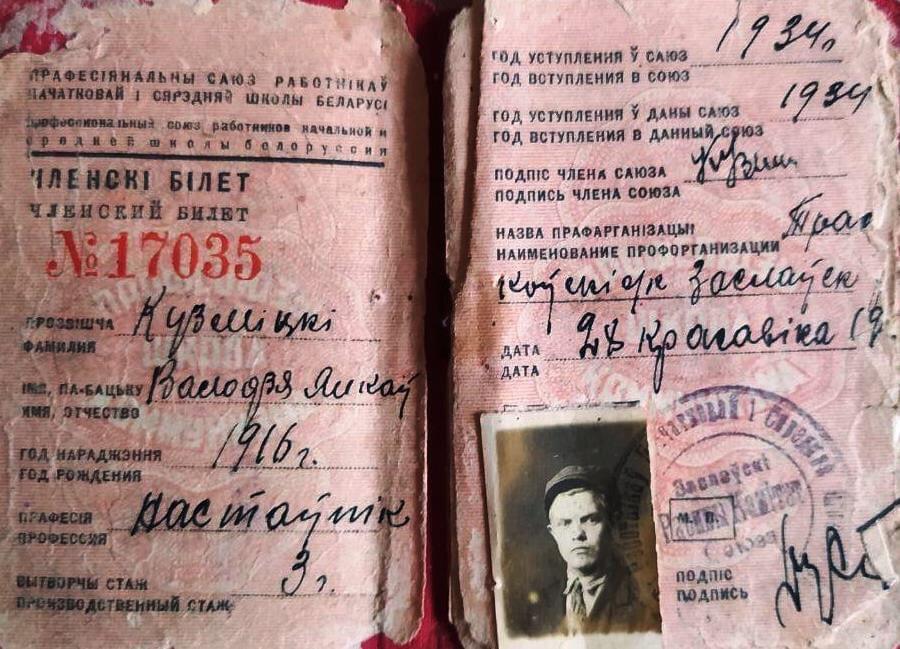 ПРАФЕСІЯНАЛЬНЫ САЮЗ РАБОТНІКАЎ
ПАЧАТКОВАЙ І СЯРЭДНЯЙ ШКОЛЫ БЕЛАРУСІ
профессиональный союз работников начальной и
средней школы белоруссии
ЧЛЕНСКІ БІЛЕТ
ЧЛЕНСКИЙ БИЛЕТ
№17035
ПРОЗВІШЧА Кузміцкі
ФАМИЛИЯ
ІМЯ, ПА-БАЦЬКУ Валодзя
ИМЯ, ОТЧЕСТВО
ГОД НАРАДЖЭННЯ 1916 г.
ГОД РОЖДЕНИЯ
ПРАФЕСІЯ Настаўнік
ПРОФЕССИЯ
ВЫТВОРЧЫ СТАЖ 3 г.
ПРОИЗВОДСТВЕННЫЙ СТАЖ
ГОД УСТУПЛЕНИЯ Ў САЮЗ 1934 г.
ГОД ВСТУПЛЕНИЯ В СОЮЗ
ГОД УСТУПЛЕНИЯ Ў ДАНЫ САЮЗ 1934
ГОД ВСТУПЛЕНИЯ В ДАННЫЙ СОЮЗ
ПОДПІС ЧЛЕНА САЮЗА
ПОДПИСЬ ЧЛЕНА СОЮЗА
НАЗВА ПРАФАРГАНІЗАЦЫІ
НАИМЕНОВАНИЕ ПРОФОРГАНИЗАЦИИ
Заслаўск
ДАТА 28 Красавіка 19
ДАТА
Заслаўскі
М. П.
Саюза
ПОДПІС
ПОДПИСЬ